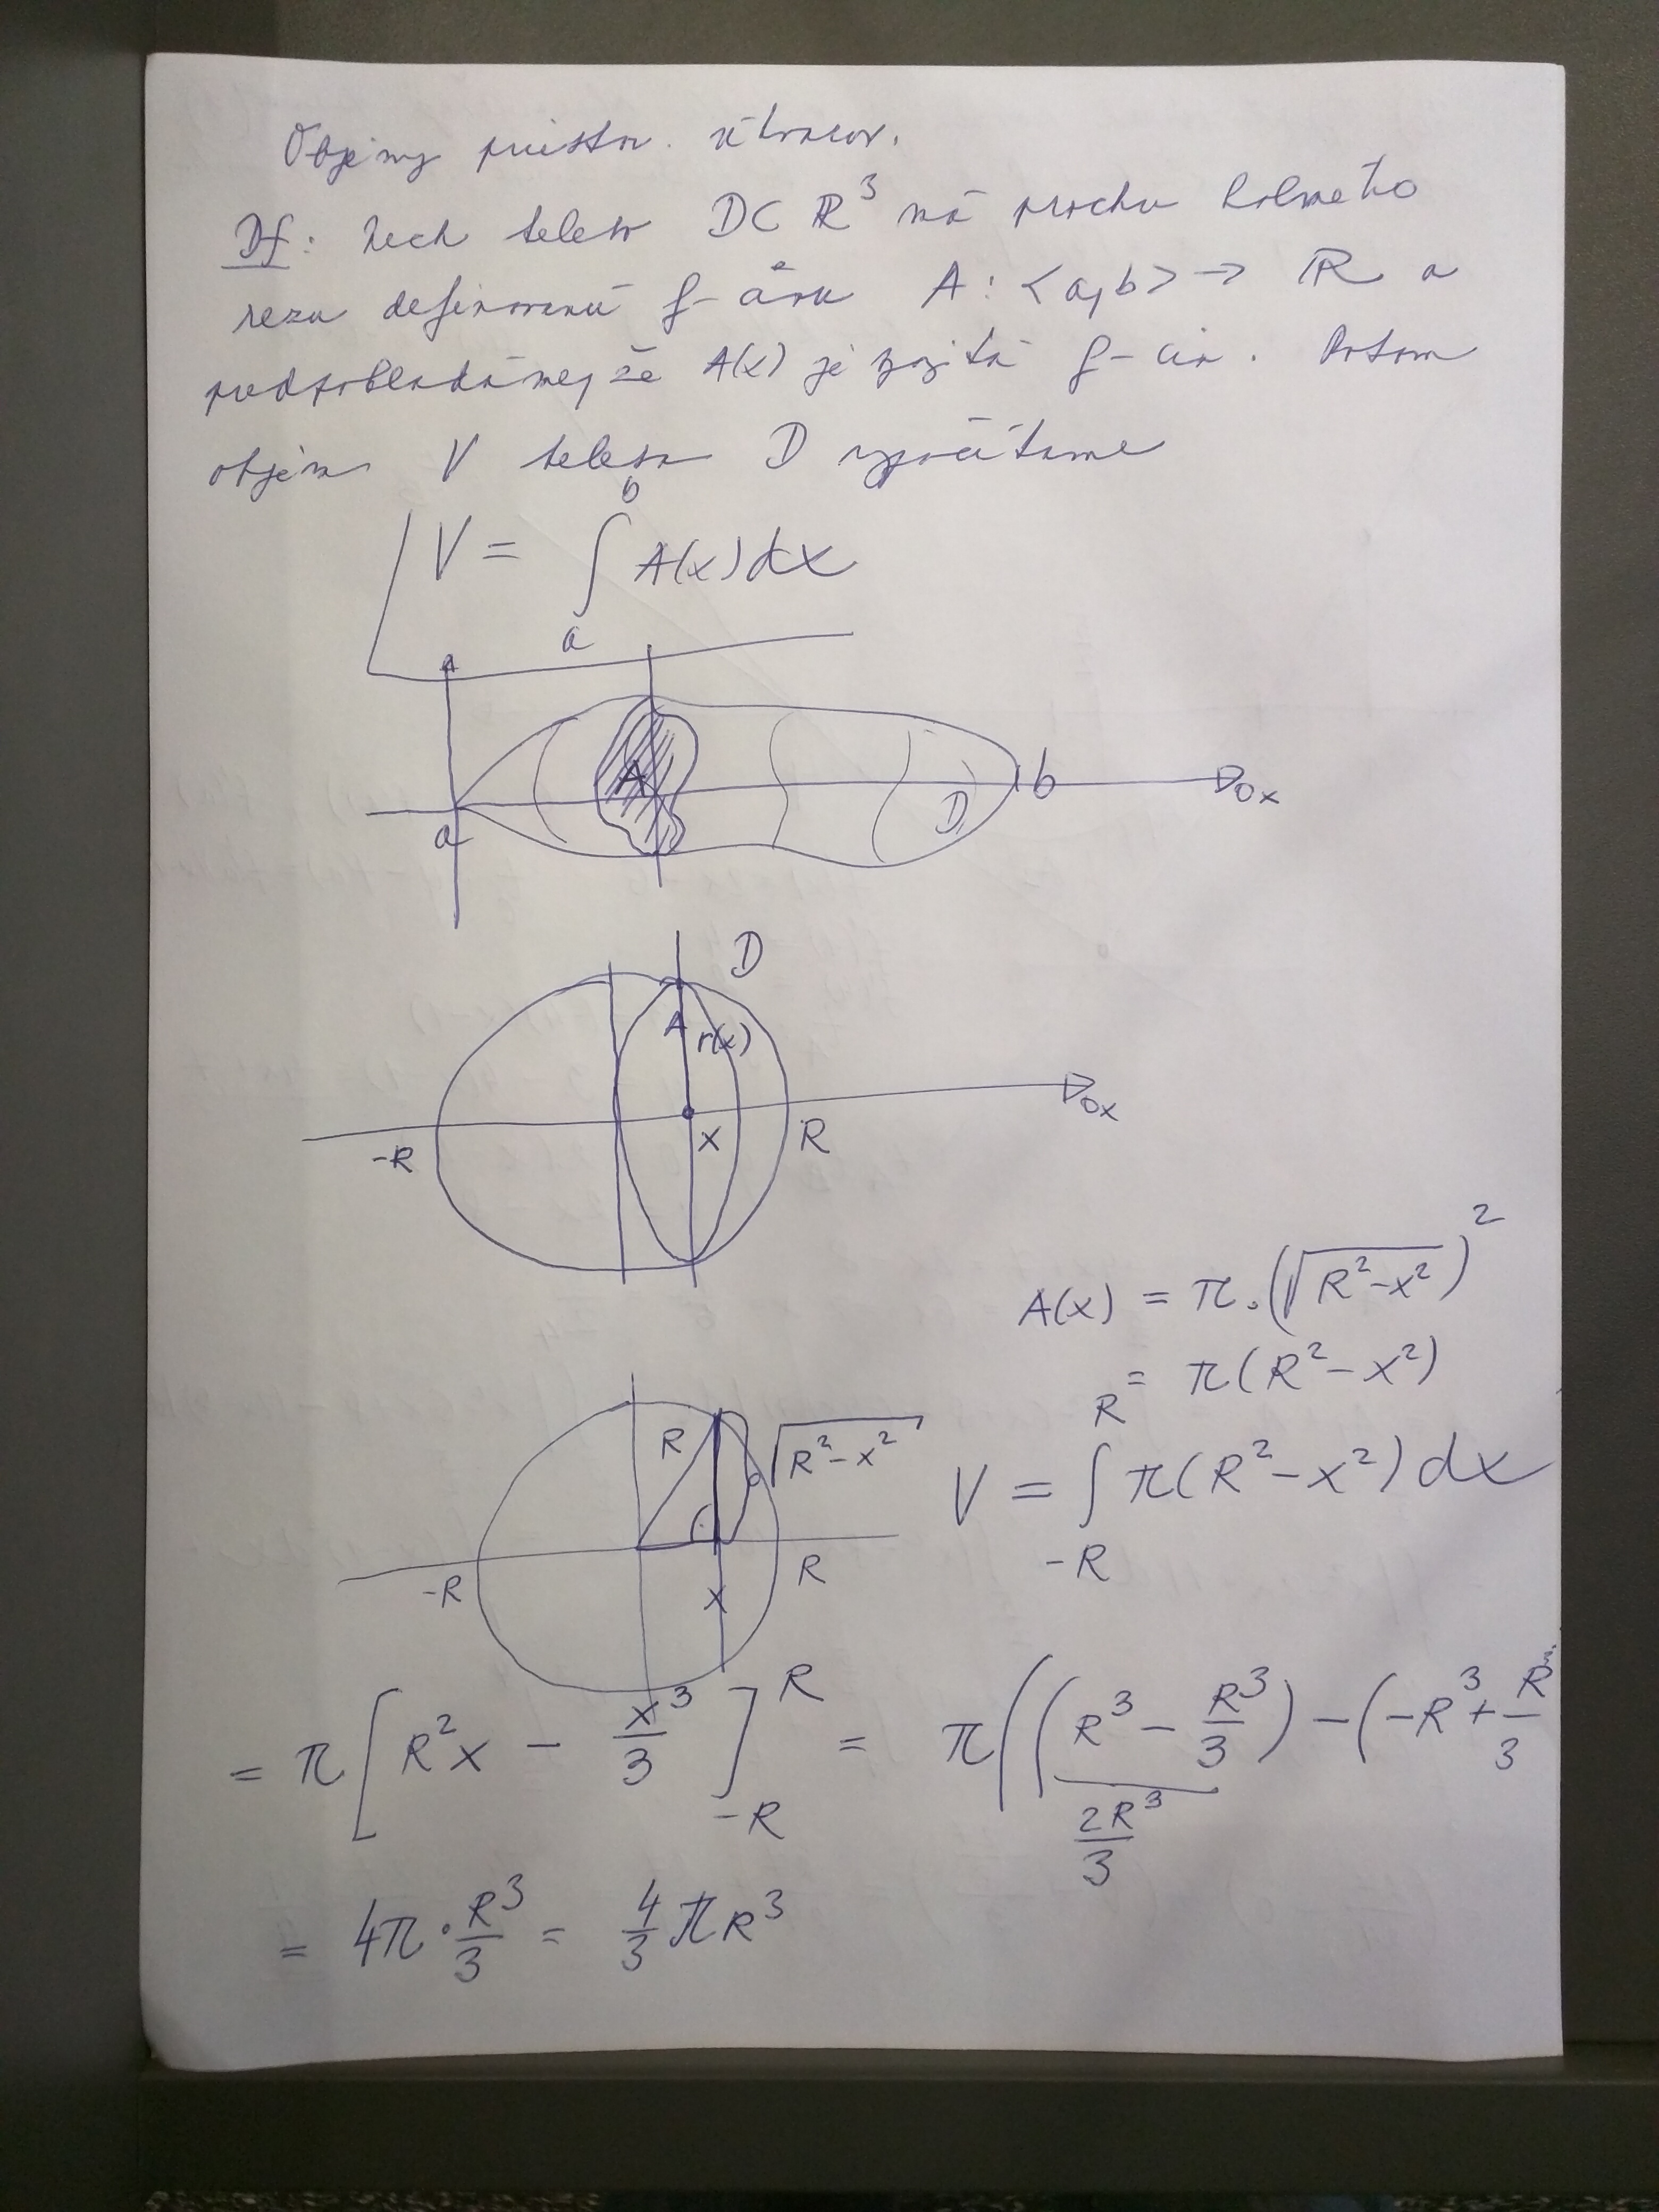 Objemy priestor. útvarov.
Df: Nech teleso D⊂ ℝ³ má plochu kolmého
rezu definovanú f-ciou A: <a,b> → ℝ a
predpokladáme, že A(x) je spojitá f-cia. Potom
objem V telesa D vypočítame
V = ∫ₐᵇ A(x)dx
A
a
b
D
ox
D
A
r(x)
ox
-R
x
R
A(x) = π.(√(R²-x²))²
= π(R²-x²)
R
√(R²-x²)
-R
x
R
V = ∫_{-R}^{R} π(R²-x²) dx
= π[R²x - x³/3]_{-R}^{R} = π((R³ - R³/3) - (-R³+R³/3
2R³/3
= 4π·R³/3 = 4/3 πR³